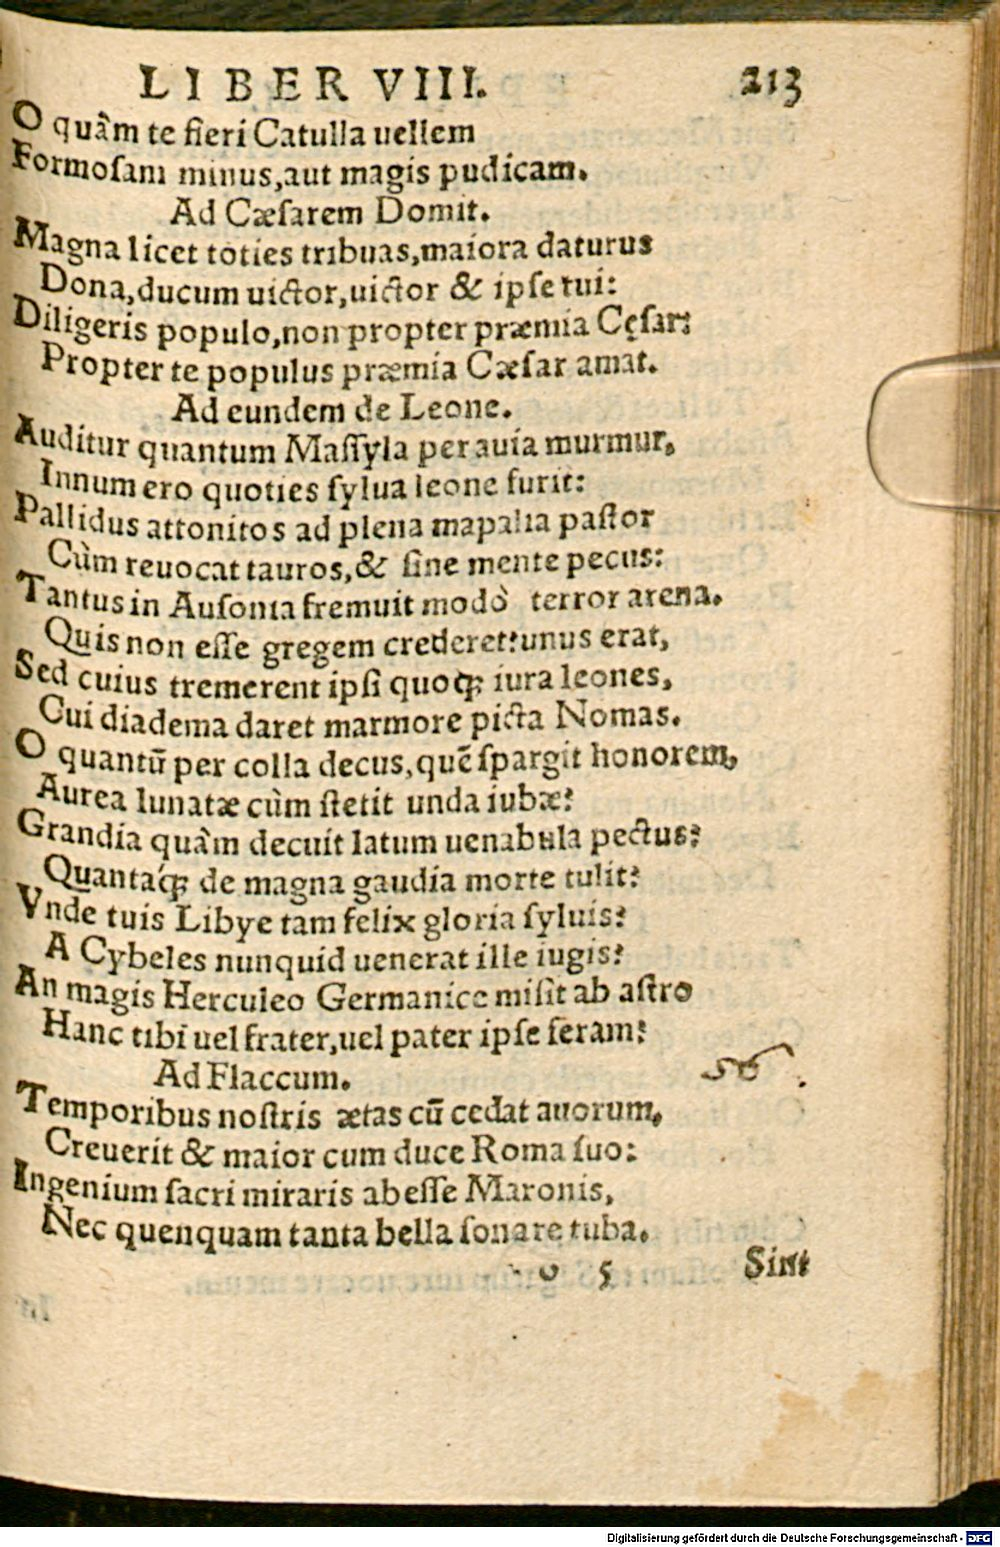 LIBER VIII. 213
O quàm te fieri Catulla uellem
Formoſam minus,aut magis pudicam.
Ad Cæſarem Domit.
Magna licet toties tribuas,maiora daturus
Dona,ducum uictor,uictor & ipſe tui:
Diligeris populo,non propter præmia Cęſar:
Propter te populus præmia Cæſar amat.
Ad eundem de Leone.
Auditur quantum Maſſyla per auia murmur,
Innumero quoties ſylua leone furit:
Pallidus attonitos ad plena mapalia paſtor
Cùm reuocat tauros,& ſine mente pecus:
Tantus in Auſonia fremuit modò terror arena.
Quis non eſſe gregem crederet?unus erat,
Sed cuius tremerent ipſi quoq; iura leones,
Cui diadema daret marmore picta Nomas.
O quantũ per colla decus,quẽ ſpargit honorem,
Aurea lunatæ cùm ſtetit unda iubæ?
Grandia quàm decuit latum uenabula pectus?
Quantaq́; de magna gaudia morte tulit?
Vnde tuis Libye tam felix gloria ſyluis?
A Cybeles nunquid uenerat ille iugis?
An magis Herculeo Germanice miſit ab aſtro
Hanc tibi uel frater,uel pater ipſe feram?
Ad Flaccum. 56.
Temporibus noſtris ætas cũ cedat auorum,
Creuerit & maior cum duce Roma ſuo:
Ingenium ſacri miraris abeſſe Maronis,
Nec quenquam tanta bella ſonare tuba.
o 5 Sint
Digitalisierung gefördert durch die Deutsche Forschungsgemeinschaft - DFG